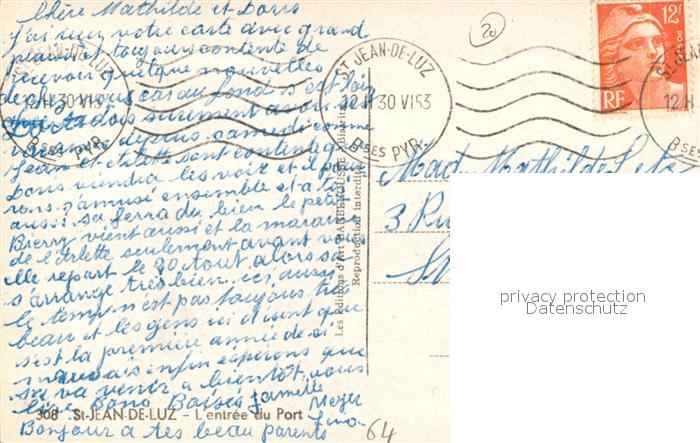 Chère Mathilde et Doris
j'ai reçu votre carte avec grand
plaisir et toujours contente de
recevoir quelque nouvelles
de chez vous car au fond s'est loin
dois surement avoir
depuis samedi comme
Jean et Arlette sont contente que
Doris viendra les voir et il pour
rons s'amusé ensemble et a toi
aussi sa ferra du bien le petit
Bierry vient aussi et la maraine
de l'Arlette seulement avant vous
elle repart le 20 Aout alors sa
s'arrange très bien, ici aussi
le temp n'est pas toujour très
beau et les gens ici disent que
s'est la première année de si
mauvais enfin esperons que
sa va venir a bientôt vous
lire Bono Baisés famille
Meyer
Lina
Bonjour a tes beau parents
308 St-JEAN-DE-LUZ - L'entrée du Port
64
Les Editions d'Art
Reproduction interdite
20
ST JEAN-DE-LUZ
12 H 30 VI 53
Bses PYR.
ST JEAN-DE-LUZ
12 H 30 VI 53
Bses PYR.
12F
POSTES
RF
ST JEAN
12 H
Bses
Mad Mathilde
3 Ru
privacy protection
Datenschutz